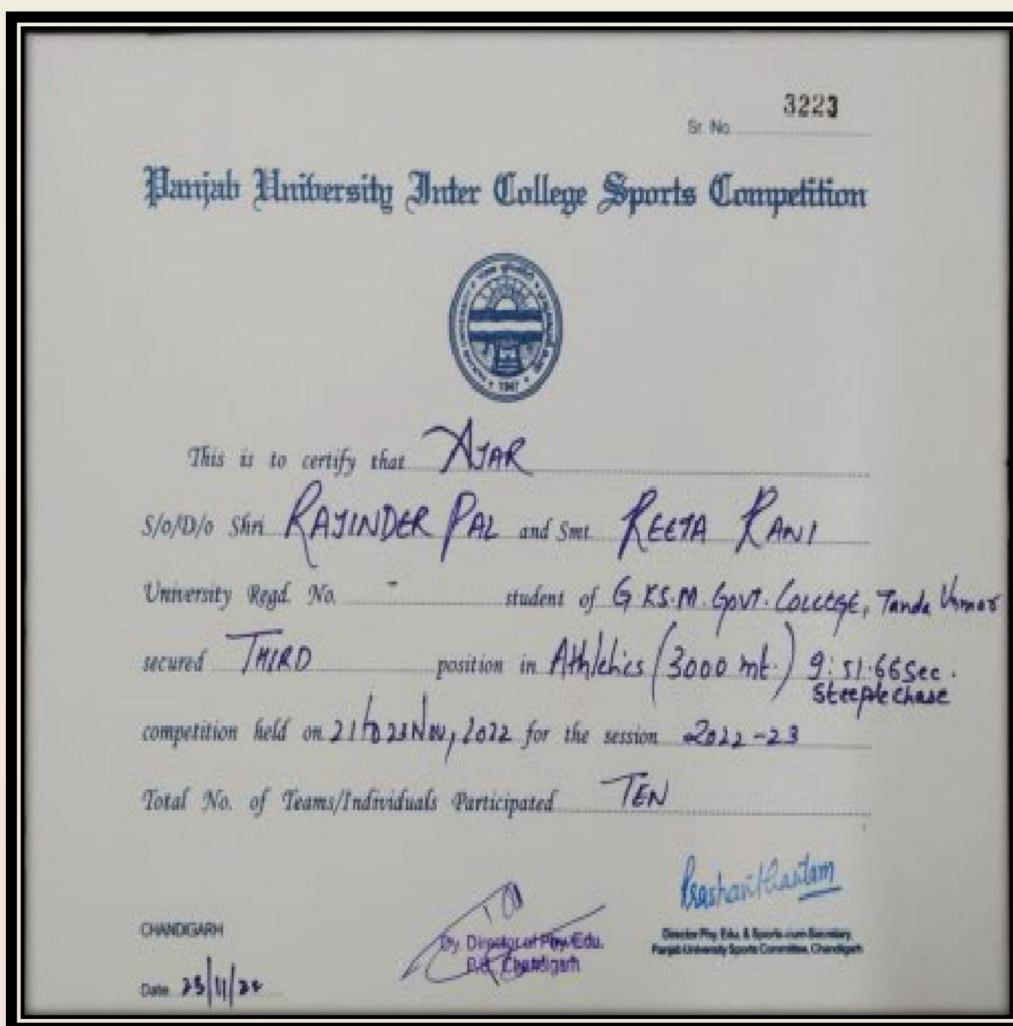 3223
Sr. No.
Panjab University Inter College Sports Competition
1947
This is to certify that AJAR
S/o/D/o Shri RAJINDER PAL and Smt. REETA RANI
University Regd. No. - student of G.K.S.M. GOVT. COLLEGE, Tanda Urmar
secured THIRD position in Athletics (3000 mt.) 9:51.66 Sec.
Steeple chase
competition held on 21 to 23 Nov, 2022 for the session 2022-23
Total No. of Teams/Individuals Participated TEN
Prashant Gautam
CHANDIGARH
Dy. Director of Phy. Edu.
P.U. Chandigarh
Director Phy. Edu. & Sports-cum-Secretary,
Panjab University Sports Committee, Chandigarh
Date 23/11/22